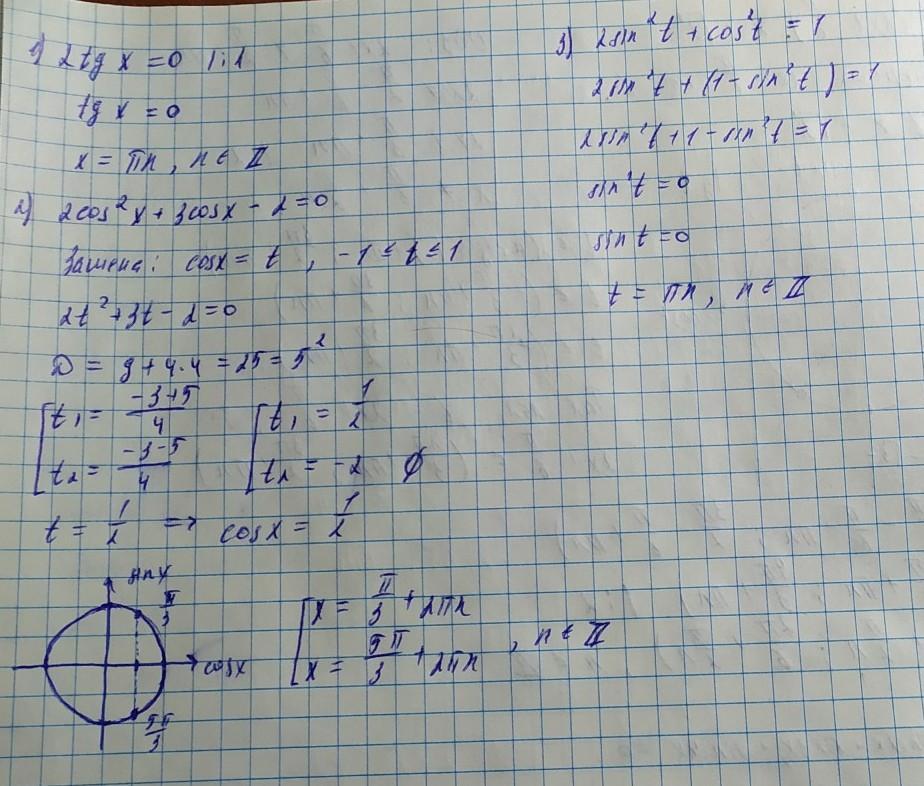 1) 2tg x = 0 | : 2
tg x = 0
x = πn, n ∈ Z
2) 2cos²x + 3cosx - 2 = 0
Замена: cosx = t, -1 ≤ t ≤ 1
2t² + 3t - 2 = 0
D = 9 + 4·4 = 25 = 5²
[ t₁ = (-3+5)/4 [ t₁ = 1/2
[ t₂ = (-3-5)/4 [ t₂ = -2 ∅
t = 1/2 => cosx = 1/2
sinx
π/3
cosx
5π/3
[ x = π/3 + 2πn
[ x = 5π/3 + 2πn , n ∈ Z
3) 2sin²t + cos²t = 1
2sin²t + (1 - sin²t) = 1
2sin²t + 1 - sin²t = 1
sin²t = 0
sin t = 0
t = πn, n ∈ Z